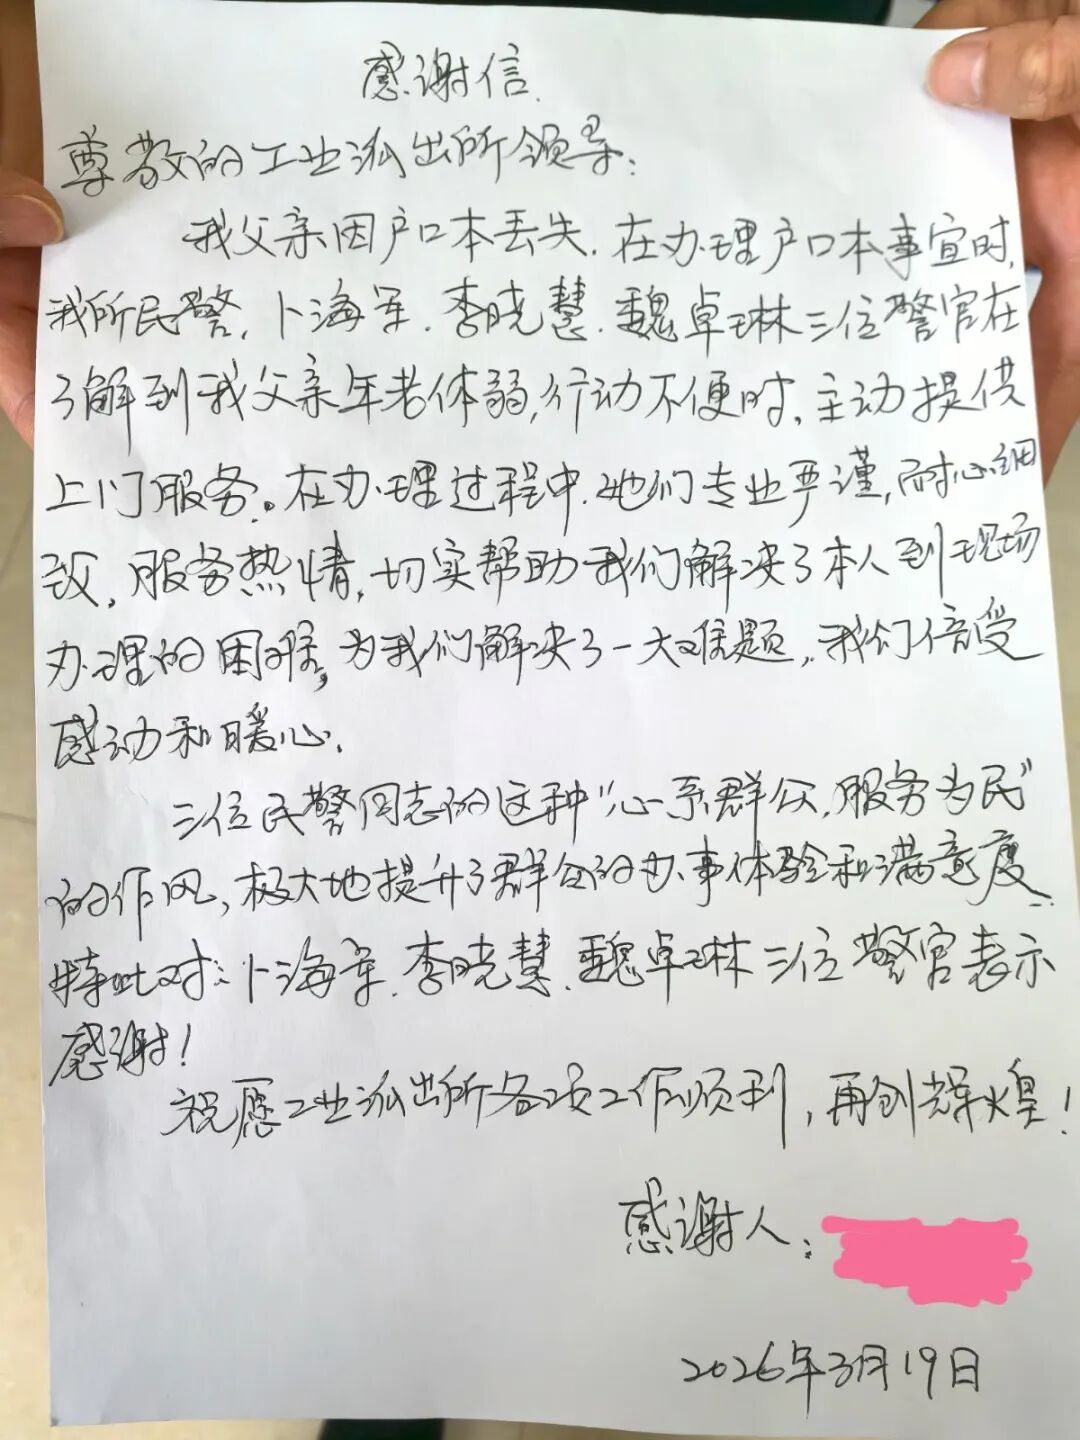 感谢信.
尊敬的工业派出所领导:
我父亲因户口本丢失.在办理户口本事宜时,
我所民警,卜海军.李晓慧.魏卓琳三位警官在
了解到我父亲年老体弱,行动不便时,主动提供
上门服务。在办理过程中.她们专业严谨,耐心细
致,服务热情,切实帮助我们解决了本人到现场
办理的困难,为我们解决了一大难题,我们倍受
感动和暖心.
三位民警同志的这种“心系群众,服务为民”
的作风,极大地提升了群众的办事体验和满意度.
特此对:卜海军.李晓慧.魏卓琳三位警官表示
感谢!
祝愿工业派出所各项工作顺利,再创辉煌!
感谢人:
2026年3月19日